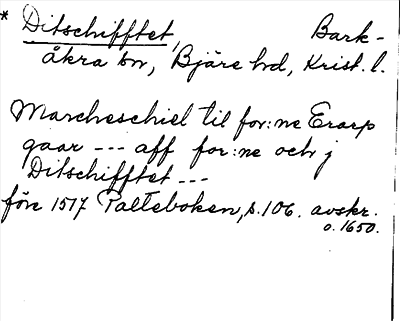 * Ditschifftet, Bark-
åkra sn, Bjäre hd, Krist. l.
Marcheschiel til for:ne Erarp
gaar --- aff for:ne och j
Ditschifftet ---
före 1517 Palteboken, s. 106. avskr.
o. 1650.